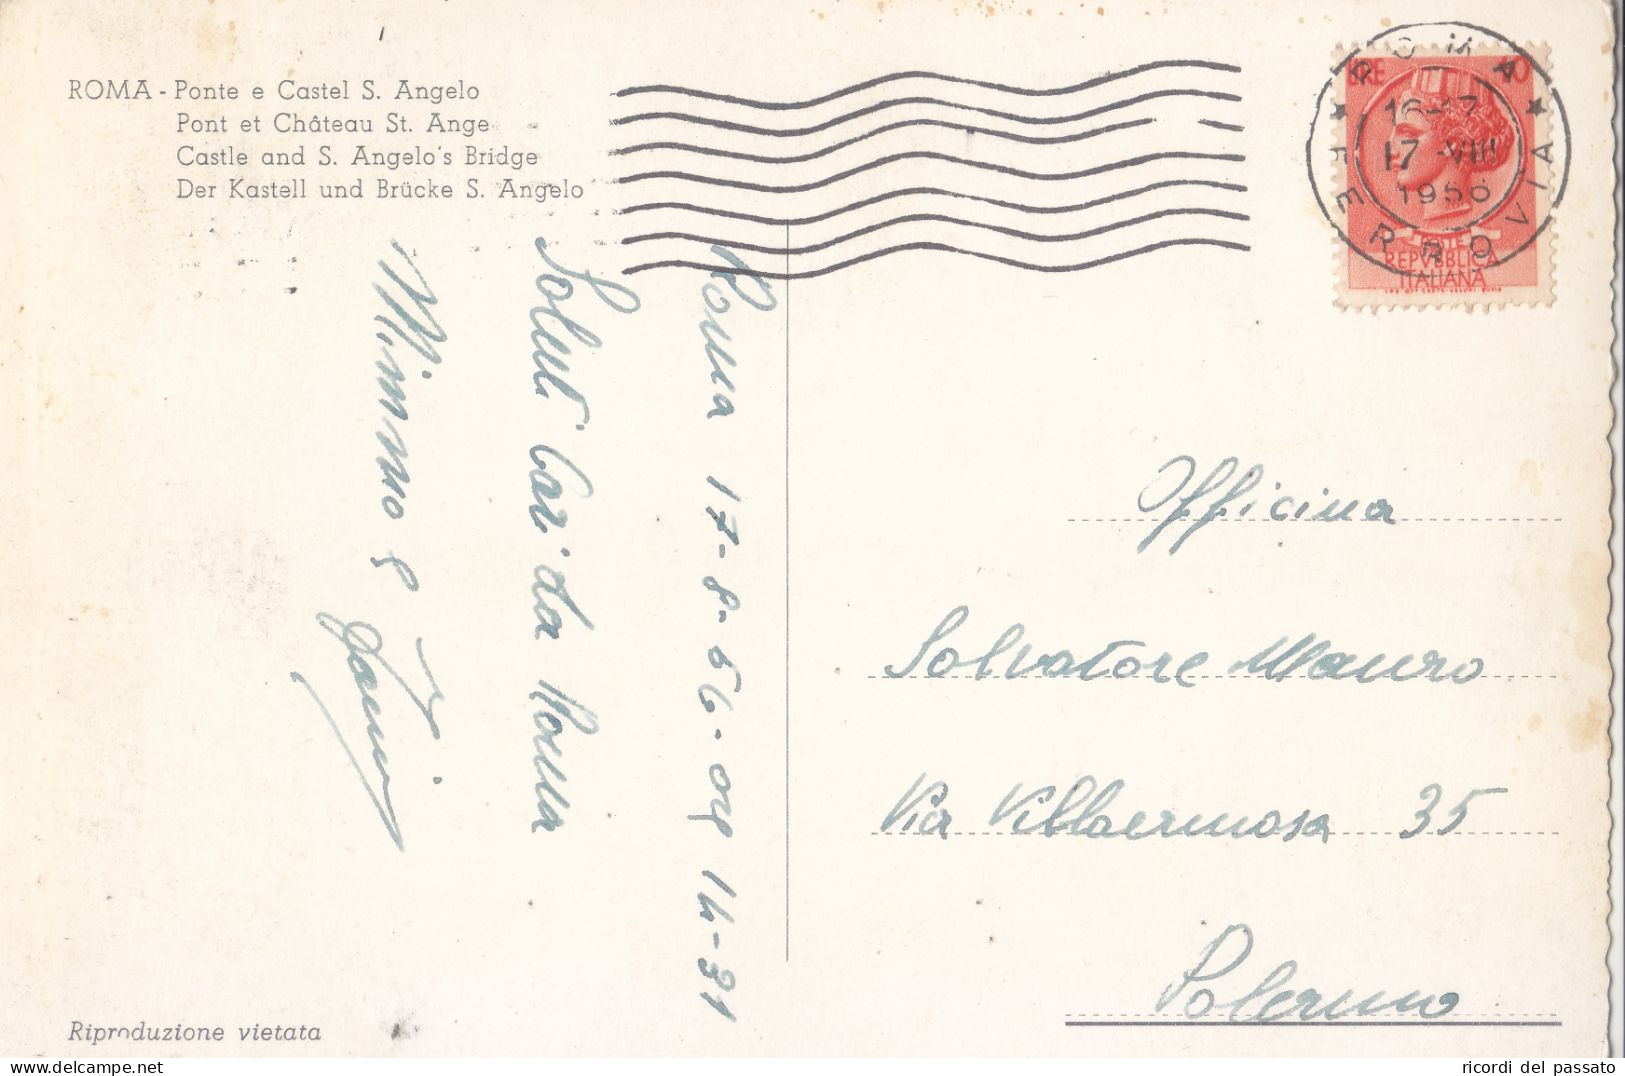 ROMA - Ponte e Castel S. Angelo
Pont et Château St. Ange
Castle and S. Angelo's Bridge
Der Kastell und Brücke S. Angelo
ROMA
FERROVIA
16-17
17 -VIII
1956
REPVBBLICA
ITALIANA
Roma 17-8-56- ore 14-31
Saluti Cari da Roma
Mimmo e
Officina
Salvatore Mauro
Via Villaermosa 35
Palermo
Riproduzione vietata
ricordi del passato